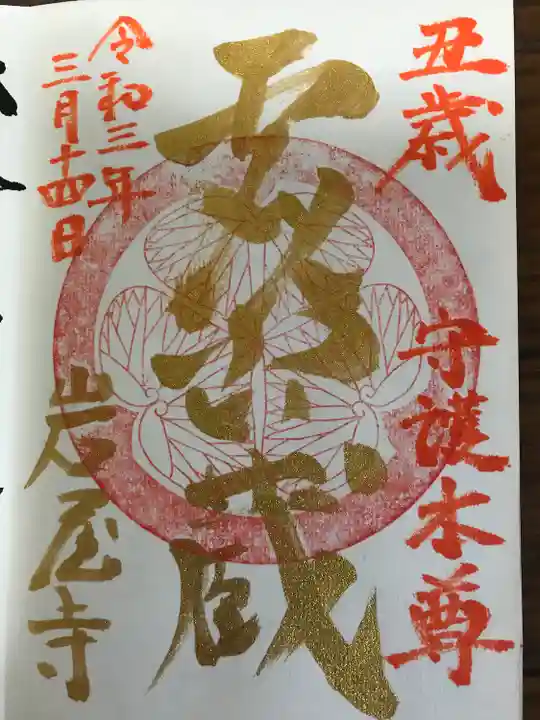 丑歳 守護本尊
虚空蔵
令和三年
三月十四日
岩屋寺